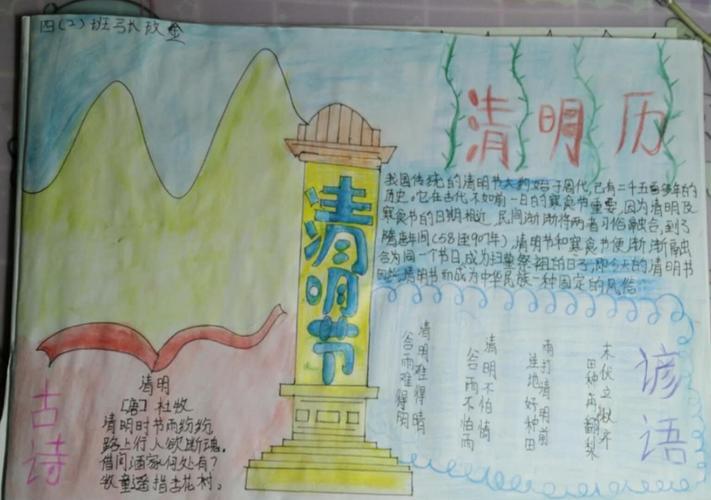 四(2)班张放金
清明历
清明节
我国传统的清明节大约始于周代,已有二千五百多年的
历史。它在古代不如前一日的寒食节重要,因为清明及
寒食节的日期相近,民间渐渐将两者习俗融合,到了
隋唐年间(581至907年),清明节和寒食节便渐渐融
合为同一个节日,成为扫墓祭祖的日子,即今天的清明节
清明节和成为中华民族一种固定的风俗!
古诗
清明
[唐] 杜牧
清明时节雨纷纷
路上行人欲断魂。
借问酒家何处有?
牧童遥指杏花村。
清明难得晴
谷雨难得阴
清明不怕晴
谷雨不怕雨
雨打清明前
洼地好种田
谚语